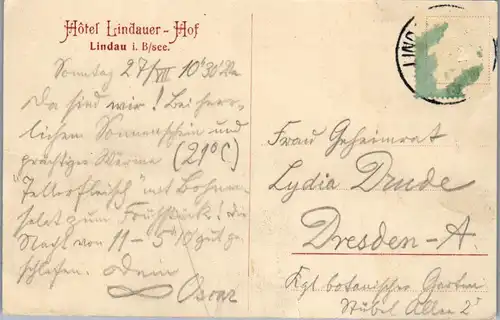 Hôtel Lindauer-Hof
Lindau i. B/see.
LIND
Sonntag 27/VII 10 30
Da sind wir! Bei herr-
lichem Sonnenschein und
prächtiger Wärme (21°C)
"Tellerfleisch" mit Bohnen
salat zum Frühstück! Die
Nacht von 11 - 5 10 gut ge-
schlafen. Dein
Oscar
Frau Geheimrat
Lydia Drude
Dresden-A.
Kgl botanischer Garten
Stübel Allee 2